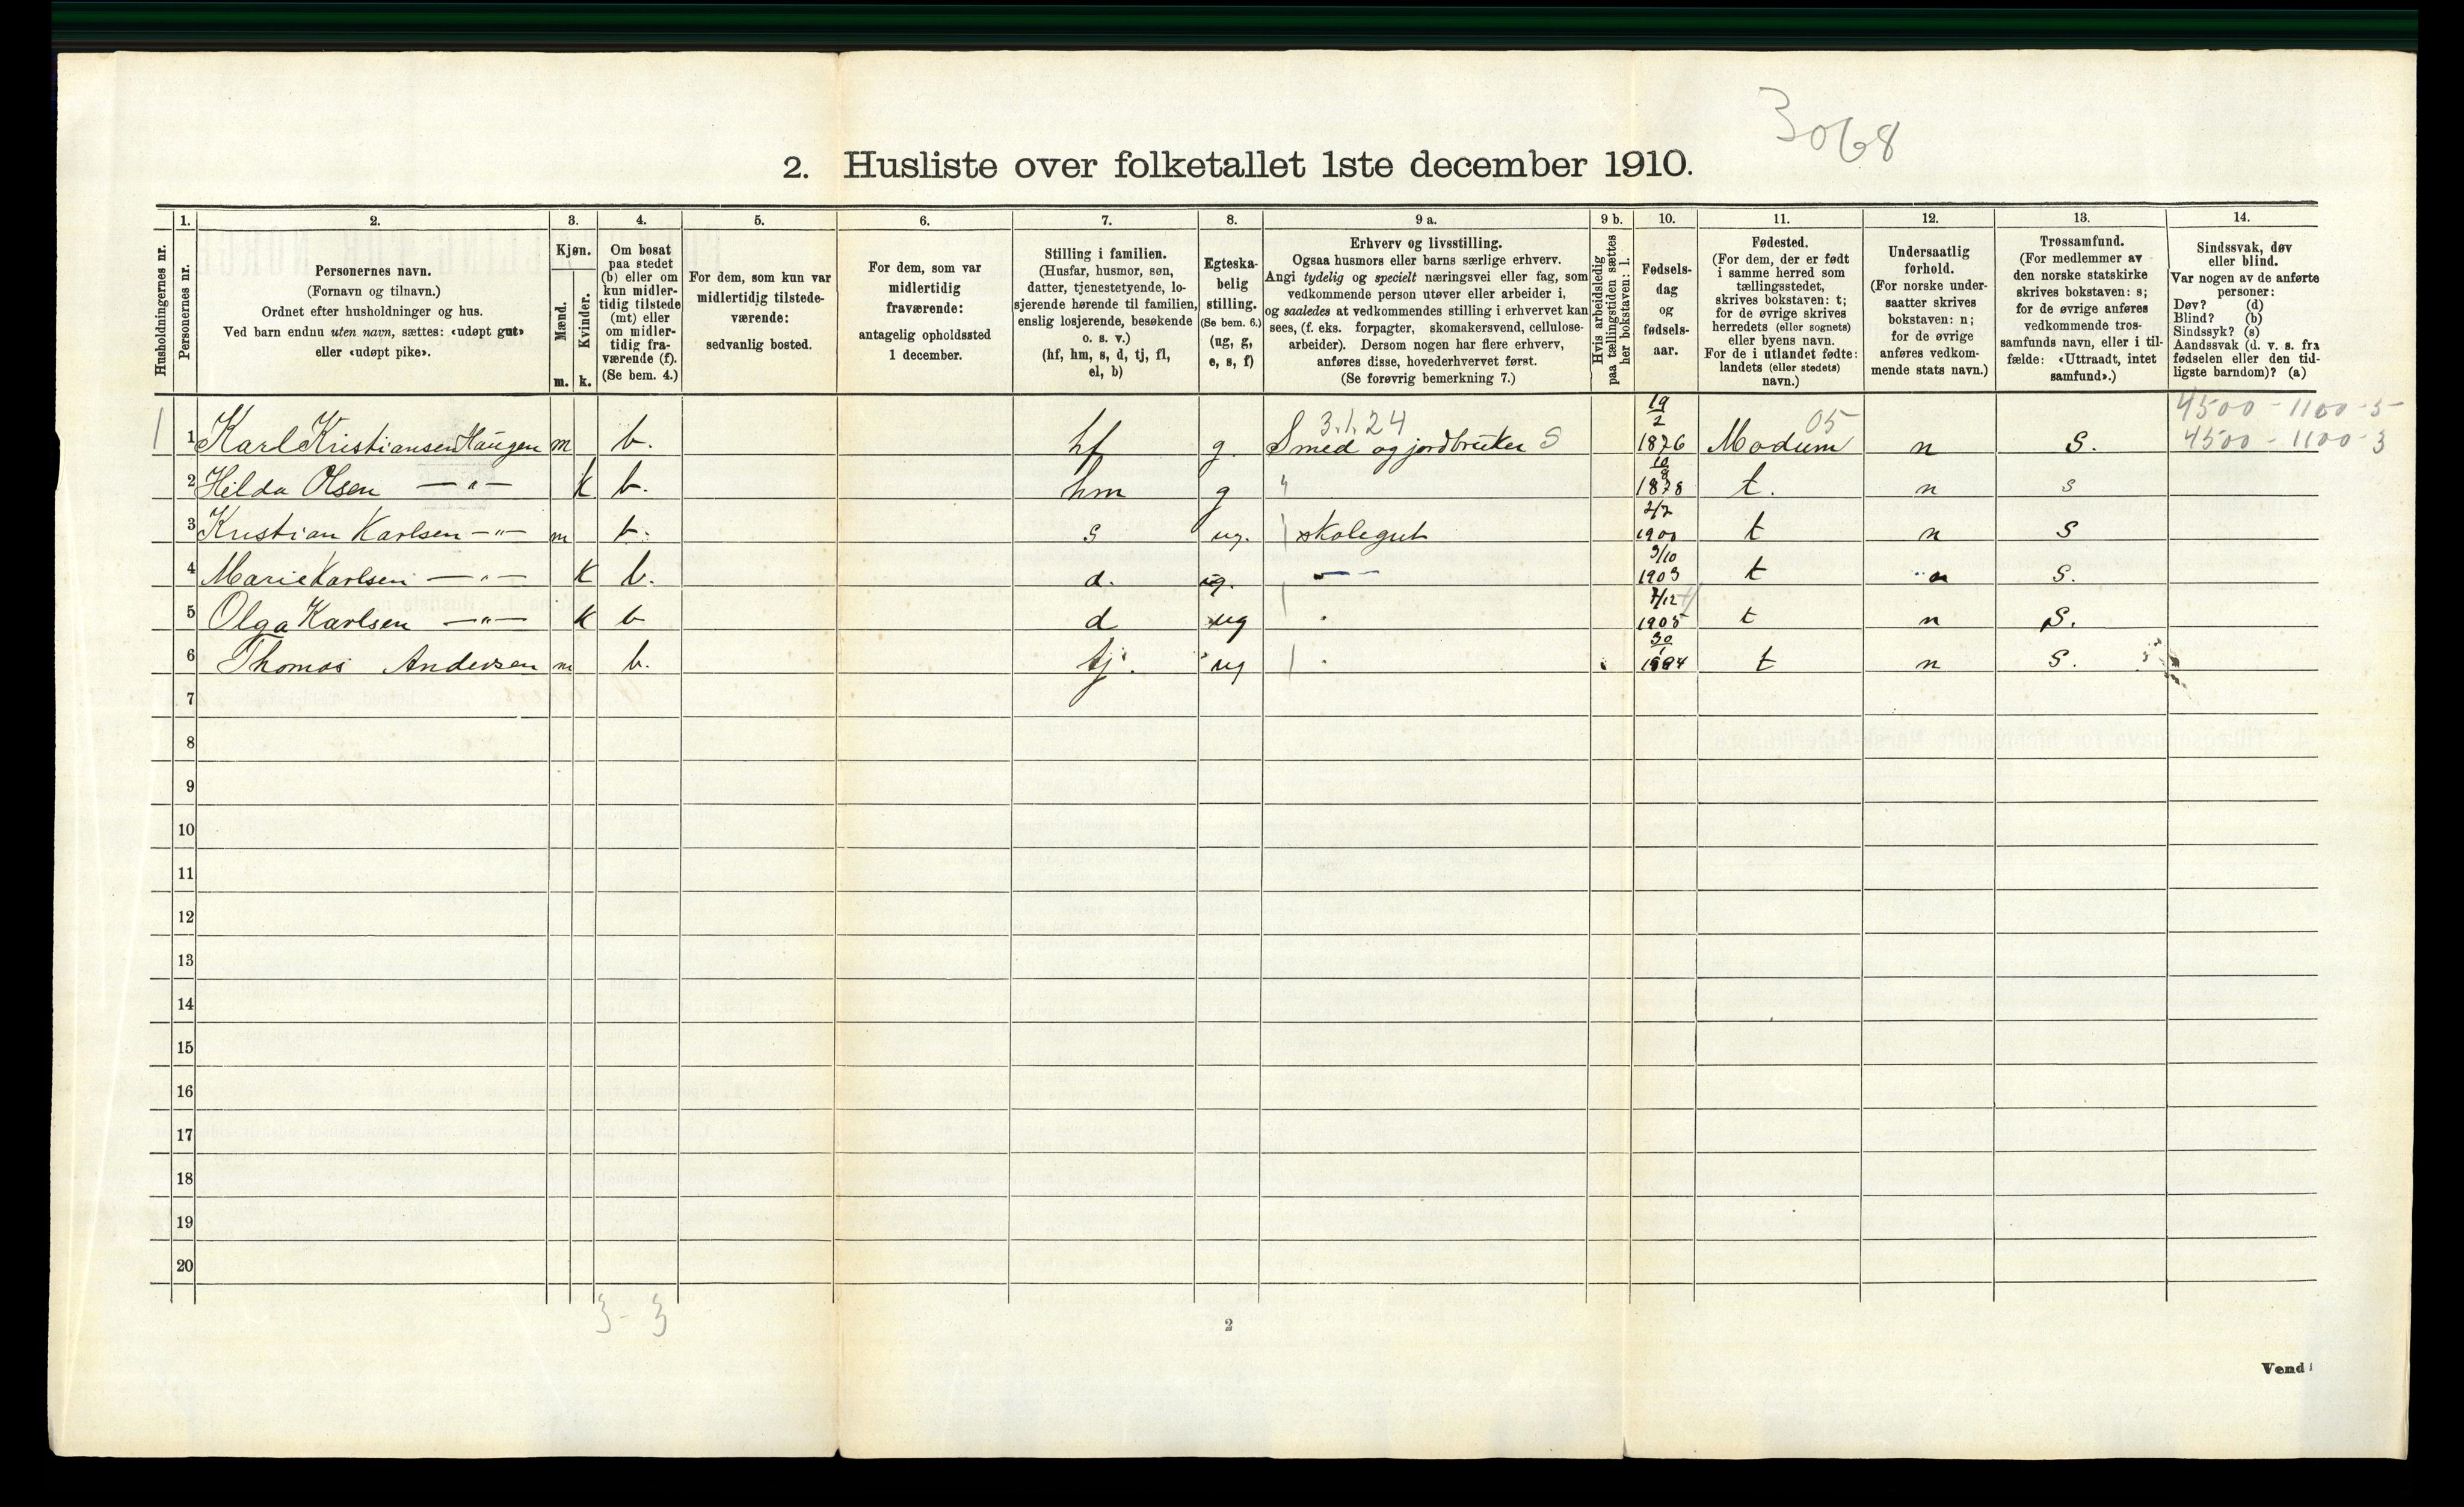 3068
2. Husliste over folketallet 1ste december 1910.
Husholdningernes nr.
1.
Personernes nr.
2.
Personernes navn.
(Fornavn og tilnavn.)
Ordnet efter husholdninger og hus.
Ved barn endnu uten navn, sættes: «udøpt gut»
eller «udøpt pike».
3.
Kjøn.
Mænd.
Kvinder.
m. k.
4.
Om bosat
paa stedet
(b) eller om
kun midler-
tidig tilstede
(mt) eller
om midler-
tidig fra-
værende (f).
(Se bem. 4.)
5.
For dem, som kun var
midlertidig tilstede-
værende:
sedvanlig bosted.
6.
For dem, som var
midlertidig
fraværende:
antagelig opholdssted
1 december.
7.
Stilling i familien.
(Husfar, husmor, søn,
datter, tjenestetyende, lo-
sjerende hørende til familien,
enslig losjerende, besøkende
o. s. v.)
(hf, hm, s, d, tj, fl,
el, b)
8.
Egteska-
belig
stilling.
(Se bem. 6.)
(ug, g,
e, s, f)
9 a.
Erhverv og livsstilling.
Ogsaa husmors eller barns særlige erhverv.
Angi tydelig og specielt næringsvei eller fag, som
vedkommende person utøver eller arbeider i,
og saaledes at vedkommendes stilling i erhvervet kan
sees, (f. eks. forpagter, skomakersvend, cellulose-
arbeider). Dersom nogen har flere erhverv,
anføres disse, hovederhvervet først.
(Se forøvrig bemerkning 7.)
9 b.
Hvis arbeidsledig
paa tællingstiden sættes
her bokstaven: l.
10.
Fødsels-
dag
og
fødsels-
aar.
11.
Fødested.
(For dem, der er født
i samme herred som
tællingsstedet,
skrives bokstaven: t;
for de øvrige skrives
herredets (eller sognets)
eller byens navn.
For de i utlandet fødte:
landets (eller stedets)
navn.)
12.
Undersaatlig
forhold.
(For norske under-
saatter skrives
bokstaven: n;
for de øvrige
anføres vedkom-
mende stats navn.)
13.
Trossamfund.
(For medlemmer av
den norske statskirke
skrives bokstaven: s;
for de øvrige anføres
vedkommende tros-
samfunds navn, eller i til-
fælde: «Uttraadt, intet
samfund».)
14.
Sindssvak, døv
eller blind.
Var nogen av de anførte
personer:
Døv? (d)
Blind? (b)
Sindssyk? (s)
Aandssvak (d. v. s. fra
fødselen eller den tid-
ligste barndom)? (a)
3.1.24 19/2 05 4500 - 1100 - 5
1 1 Karl Kristiansen Haugen m b. hf g. Smed og jordbruker S 1876 Modum n S. 4500 - 1100 - 3
2 Hilda Olsen —"— k b. hm g 1878 t. n s
3 Kristian Karlsen —"— m b. s ug. skolegut 2/7 1900 t n S
4 Marie Karlsen —"— k b. d. ug. 1903 t n S.
5 Olga Karlsen —"— k b d ug 7/12 1905 t n S.
6 Thomas Andersen m b. tj. ug 30/1 1894 t n S.
7
8
9
10
11
12
13
14
15
16
17
18
19
20
3 - 3
2
Vend!